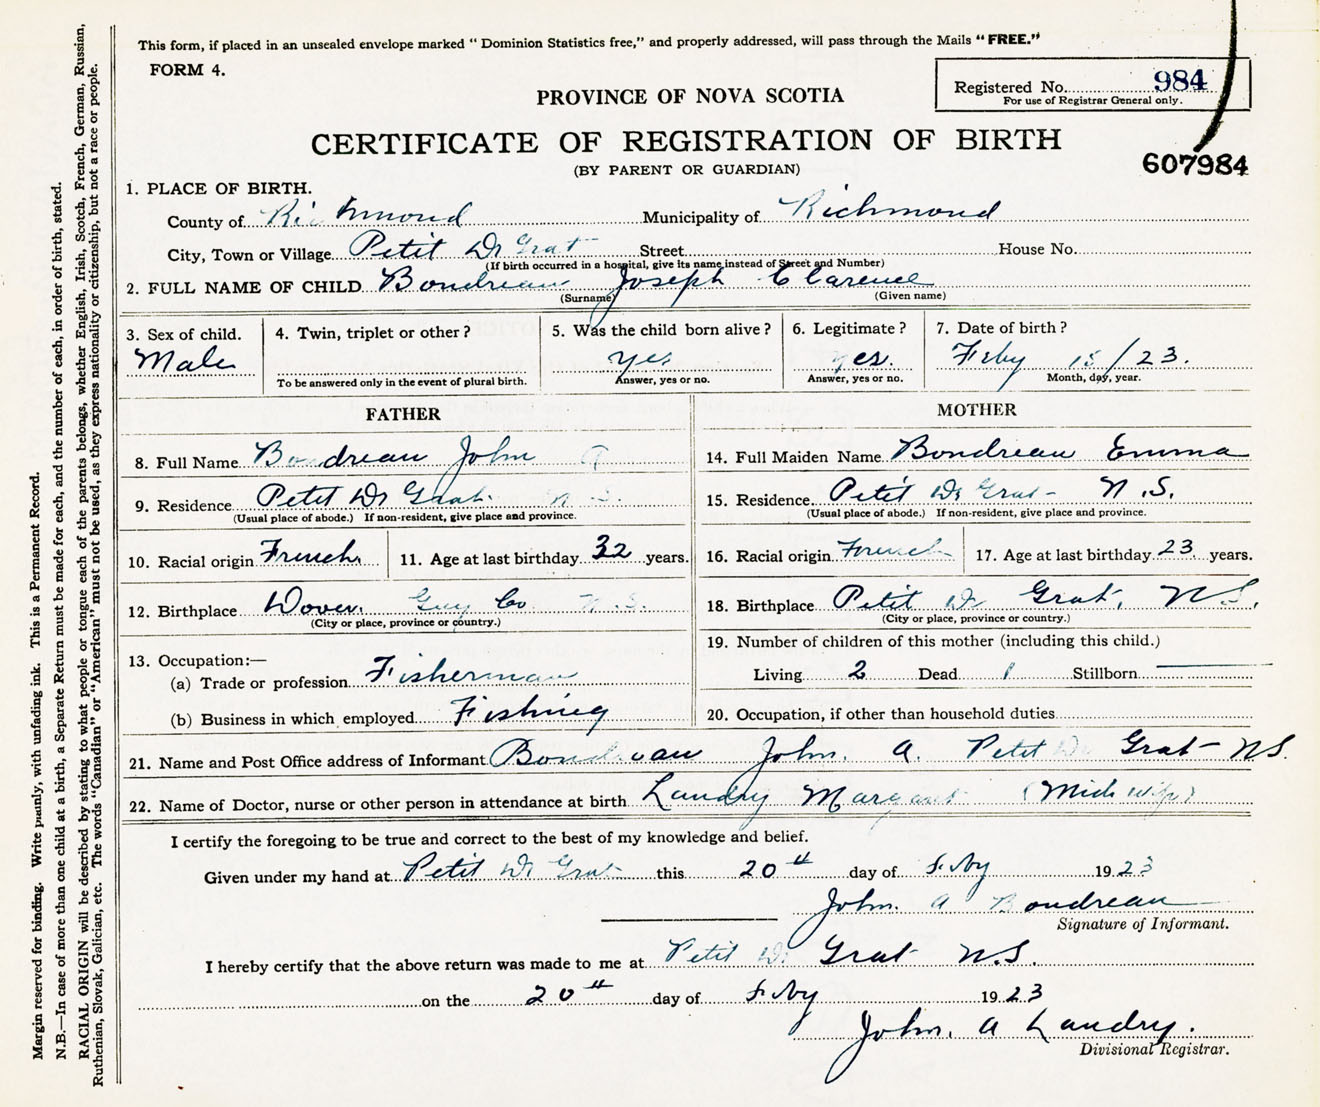 This form, if placed in an unsealed envelope marked "Dominion Statistics free," and properly addressed, will pass through the Mails "FREE."
FORM 4.
Registered No. 984
For use of Registrar General only.
PROVINCE OF NOVA SCOTIA
CERTIFICATE OF REGISTRATION OF BIRTH
(BY PARENT OR GUARDIAN)
607984
1. PLACE OF BIRTH.
County of Richmond Municipality of Richmond
City, Town or Village Petit De Grat Street House No.
(If birth occurred in a hospital, give its name instead of Street and Number)
2. FULL NAME OF CHILD Boudreau Joseph Clarence
(Surname) (Given name)
3. Sex of child. 4. Twin, triplet or other? 5. Was the child born alive? 6. Legitimate? 7. Date of birth?
Male yes yes. Feby 15/23.
To be answered only in the event of plural birth. Answer, yes or no. Answer, yes or no. Month, day, year.
FATHER MOTHER
8. Full Name Boudreau John A 14. Full Maiden Name Boudreau Emma
9. Residence Petit De Grat N.S. 15. Residence Petit De Grat N.S.
(Usual place of abode.) If non-resident, give place and province. (Usual place of abode.) If non-resident, give place and province.
10. Racial origin French 11. Age at last birthday 32 years. 16. Racial origin French 17. Age at last birthday 23 years.
12. Birthplace Dover Guy Co N.S. 18. Birthplace Petit De Grat, N.S.
(City or place, province or country.) (City or place, province or country.)
19. Number of children of this mother (including this child.)
13. Occupation:—
(a) Trade or profession Fisherman Living 2 Dead 1 Stillborn
(b) Business in which employed Fishing 20. Occupation, if other than household duties
21. Name and Post Office address of Informant Boudreau John. A. Petit De Grat N.S.
22. Name of Doctor, nurse or other person in attendance at birth Landry Margaret (Midwife)
I certify the foregoing to be true and correct to the best of my knowledge and belief.
Given under my hand at Petit De Grat this 20th day of Feby 1923
John. A Boudreau
Signature of Informant.
I hereby certify that the above return was made to me at Petit De Grat N.S.
on the 20th day of Feby 1923
John. A Landry.
Divisional Registrar.
Margin reserved for binding. Write plainly, with unfading ink. This is a Permanent Record.
N.B.—In case of more than one child at a birth, a Separate Return must be made for each, and the number of each, in order of birth, stated.
RACIAL ORIGIN will be described by stating to what people or tongue each of the parents belongs, whether English, Irish, Scotch, French, German, Russian,
Ruthenian, Slovak, Galician, etc. The words "Canadian" or "American" must not be used, as they express nationality or citizenship, but not a race or people.